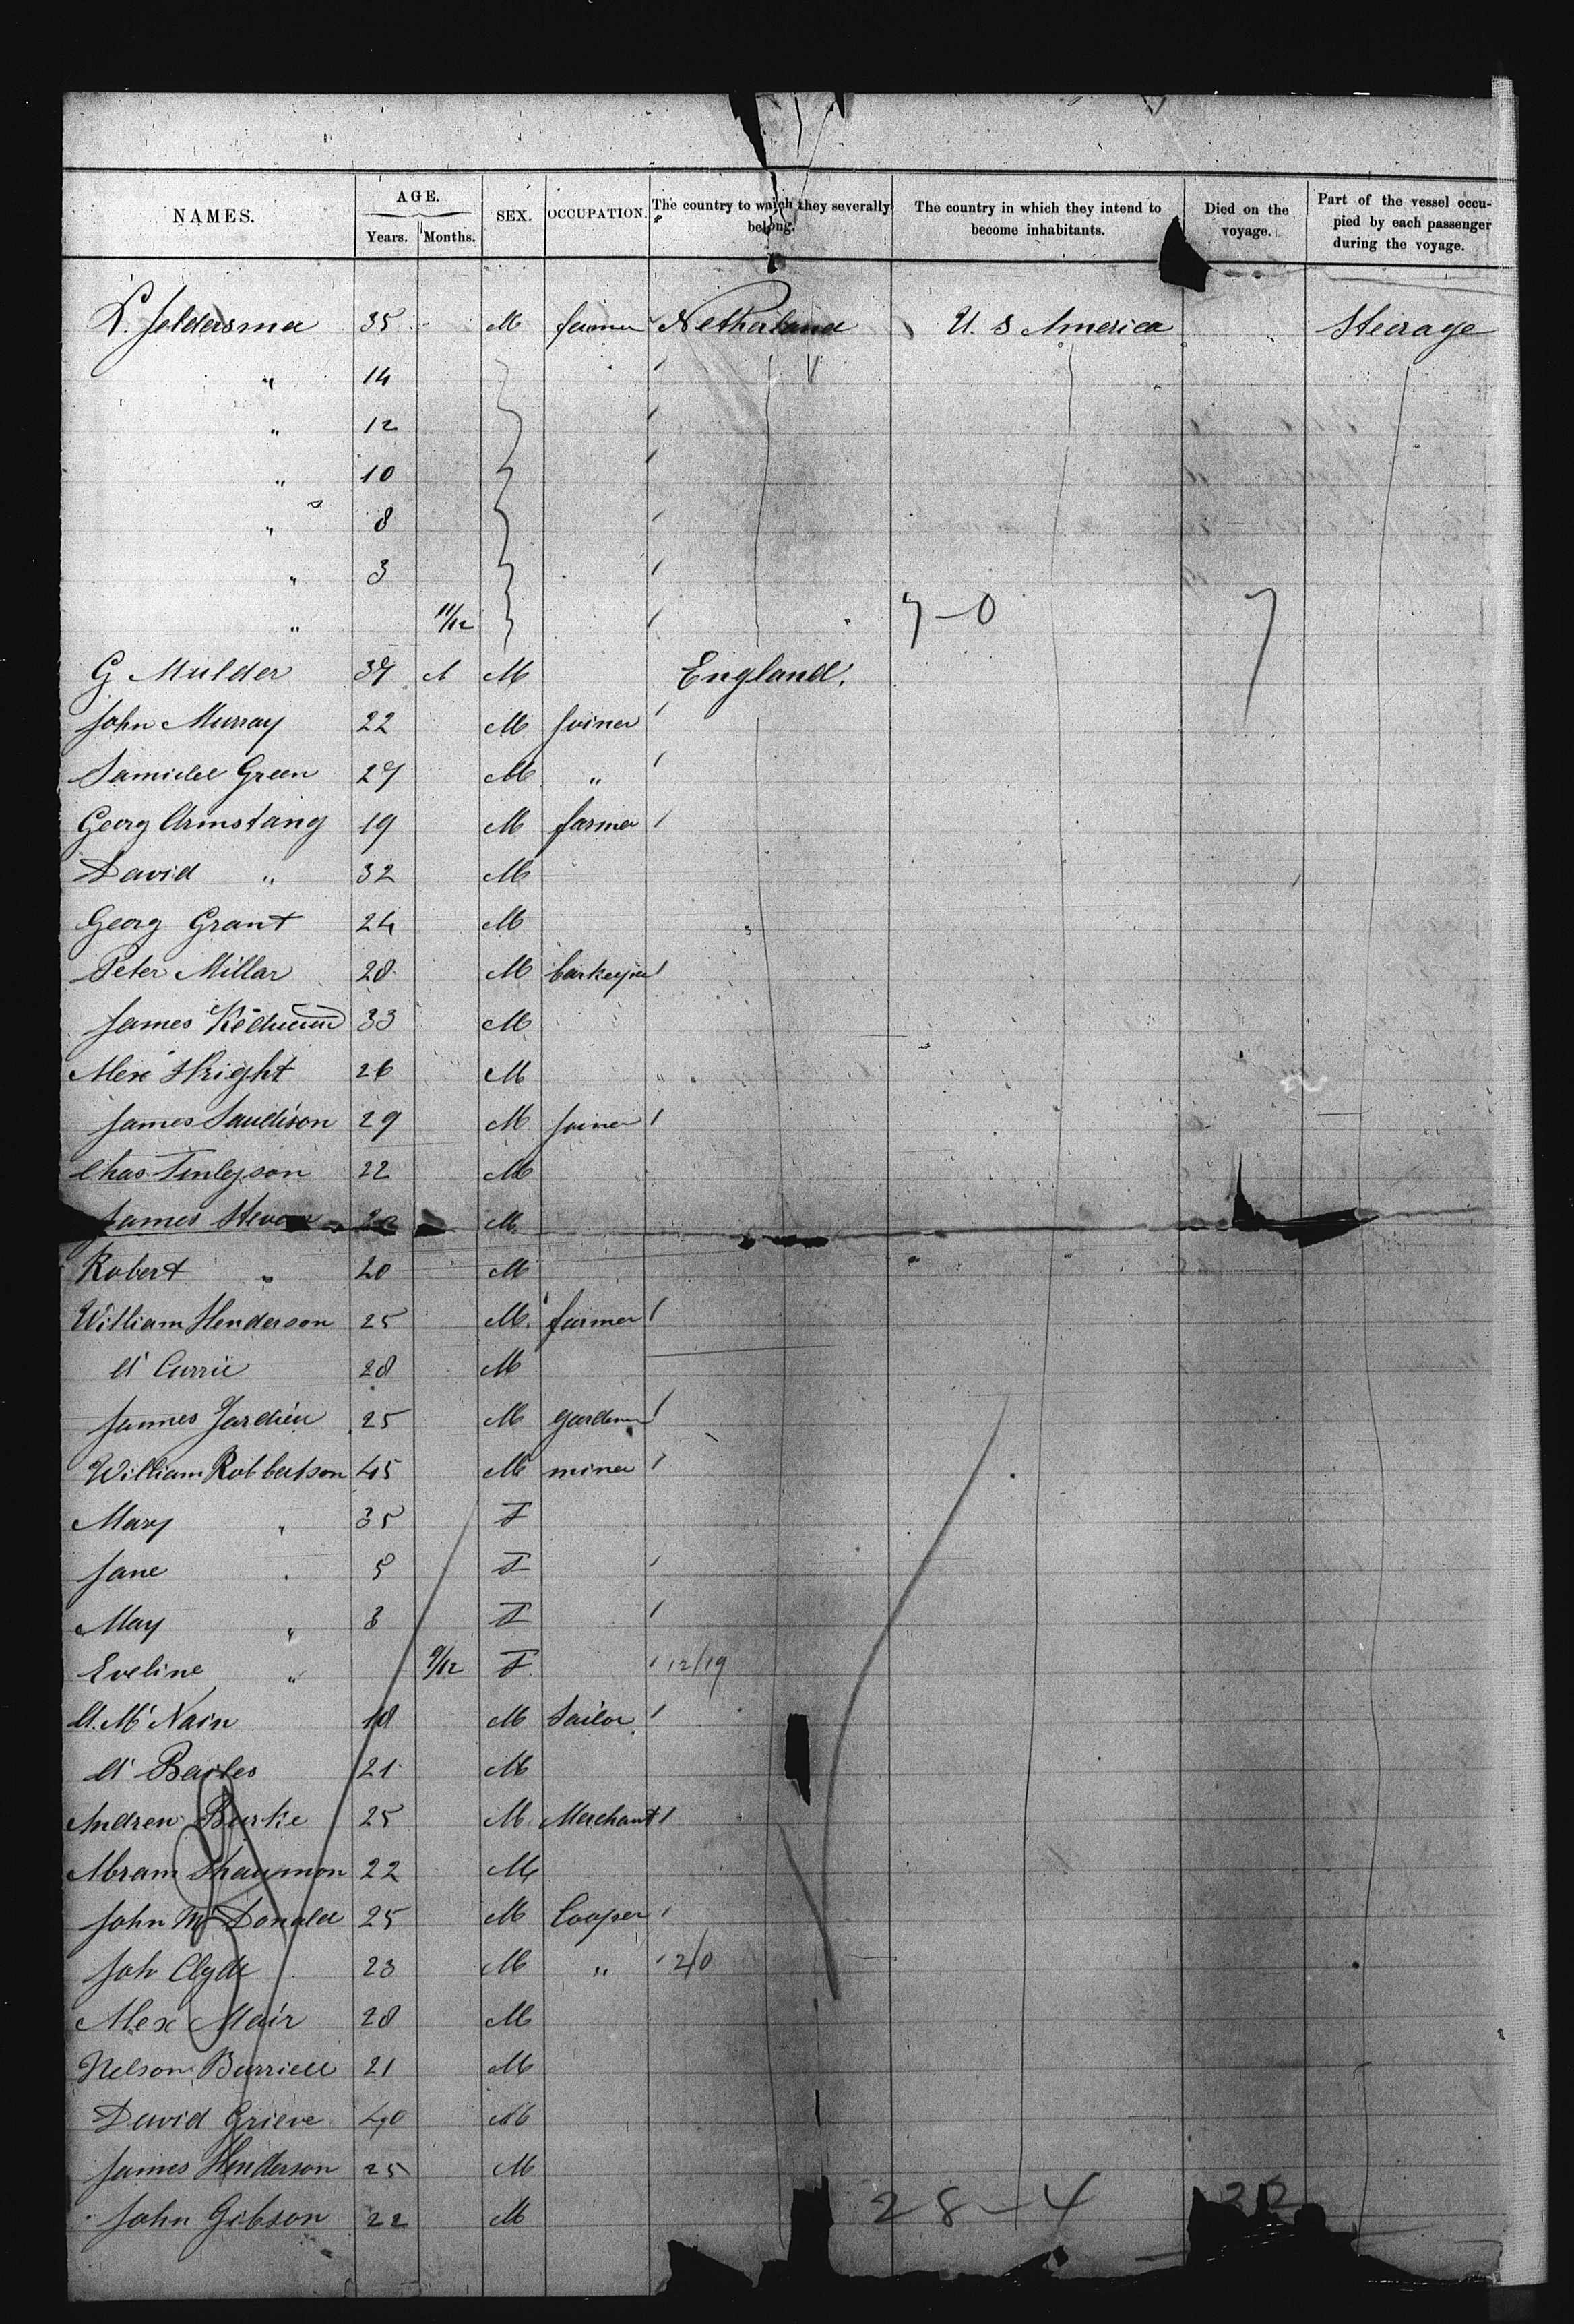 NAMES. AGE. SEX. OCCUPATION. The country to which they severally belong. The country in which they intend to become inhabitants. Died on the voyage. Part of the vessel occupied by each passenger during the voyage.
Years. Months.
Jeldersma 35 M farmer Netherland U. S America Steerage
" 14
" 12
" 10
" 8
" 3
" 11/12 7-0 7
G Mulder 37 M England.
John Murray 22 M Joiner
Samuel Green 27 M "
Georg Armstang 19 M farmer
David " 32 M
Georg Grant 24 M
Peter Millar 28 M barkeeper
James 33 M
Alex Wright 26 M
James Saudison 29 M Joiner
Chas Finlyson 22 M
James M
Robert " 20 M
William Henderson 25 M farmer
A Currie 28 M
James Jardien 25 M gardener
William Robbertson 45 M miner
Mary " 35 F
Jane " 5 F
May " 3 F
Eveline " 9/12 F 12/19
A. Mc Nain 18 M Sailor
A Bailes 21 M
Andrew Burke 25 M Merchant
Abram 22 M
John Mc Donald 25 M Cooper
Joh Clyde 23 M " 2/0
Alex Mair 28 M
Nelson Burriell 21 M
David Grieve 40 M
James Henderson 25 M
John Gibson 22 M
28-4 22